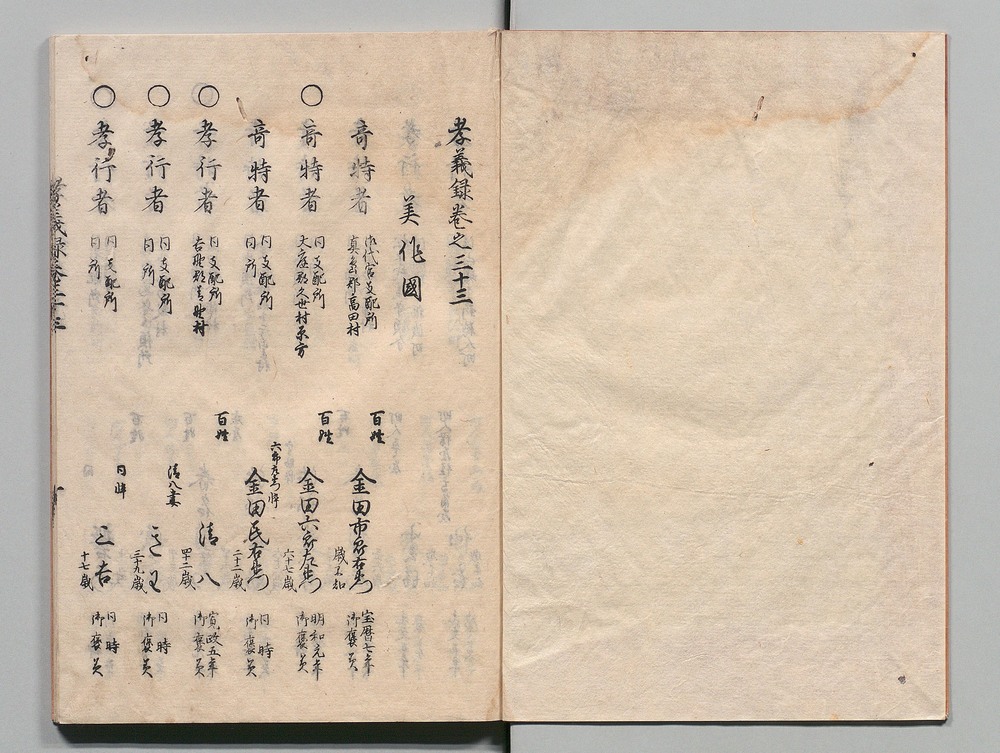 孝義録巻之三十三
美作國
奇特者
御代官支配所
真嶋郡高田村
百姓
金田市郎右衛門
歳不知
宝暦七年
御褒美
○奇特者
同支配所
大庭郡久世村原方
百姓
金田六郎左衛門
六十七歳
明和元年
御褒美
奇特者
同支配所
同所
六郎左衛門忰
金田民右衛門
二十二歳
同時
御褒美
○孝行者
同支配所
吉野郡青野村
百姓
清八
四十二歳
寛政五年
御褒美
○孝行者
同支配所
同所
清八妻
三十九歳
同時
御褒美
○孝行者
同支配所
同所
同忰
三吉
十七歳
同時
御褒美
孝義録巻三十三